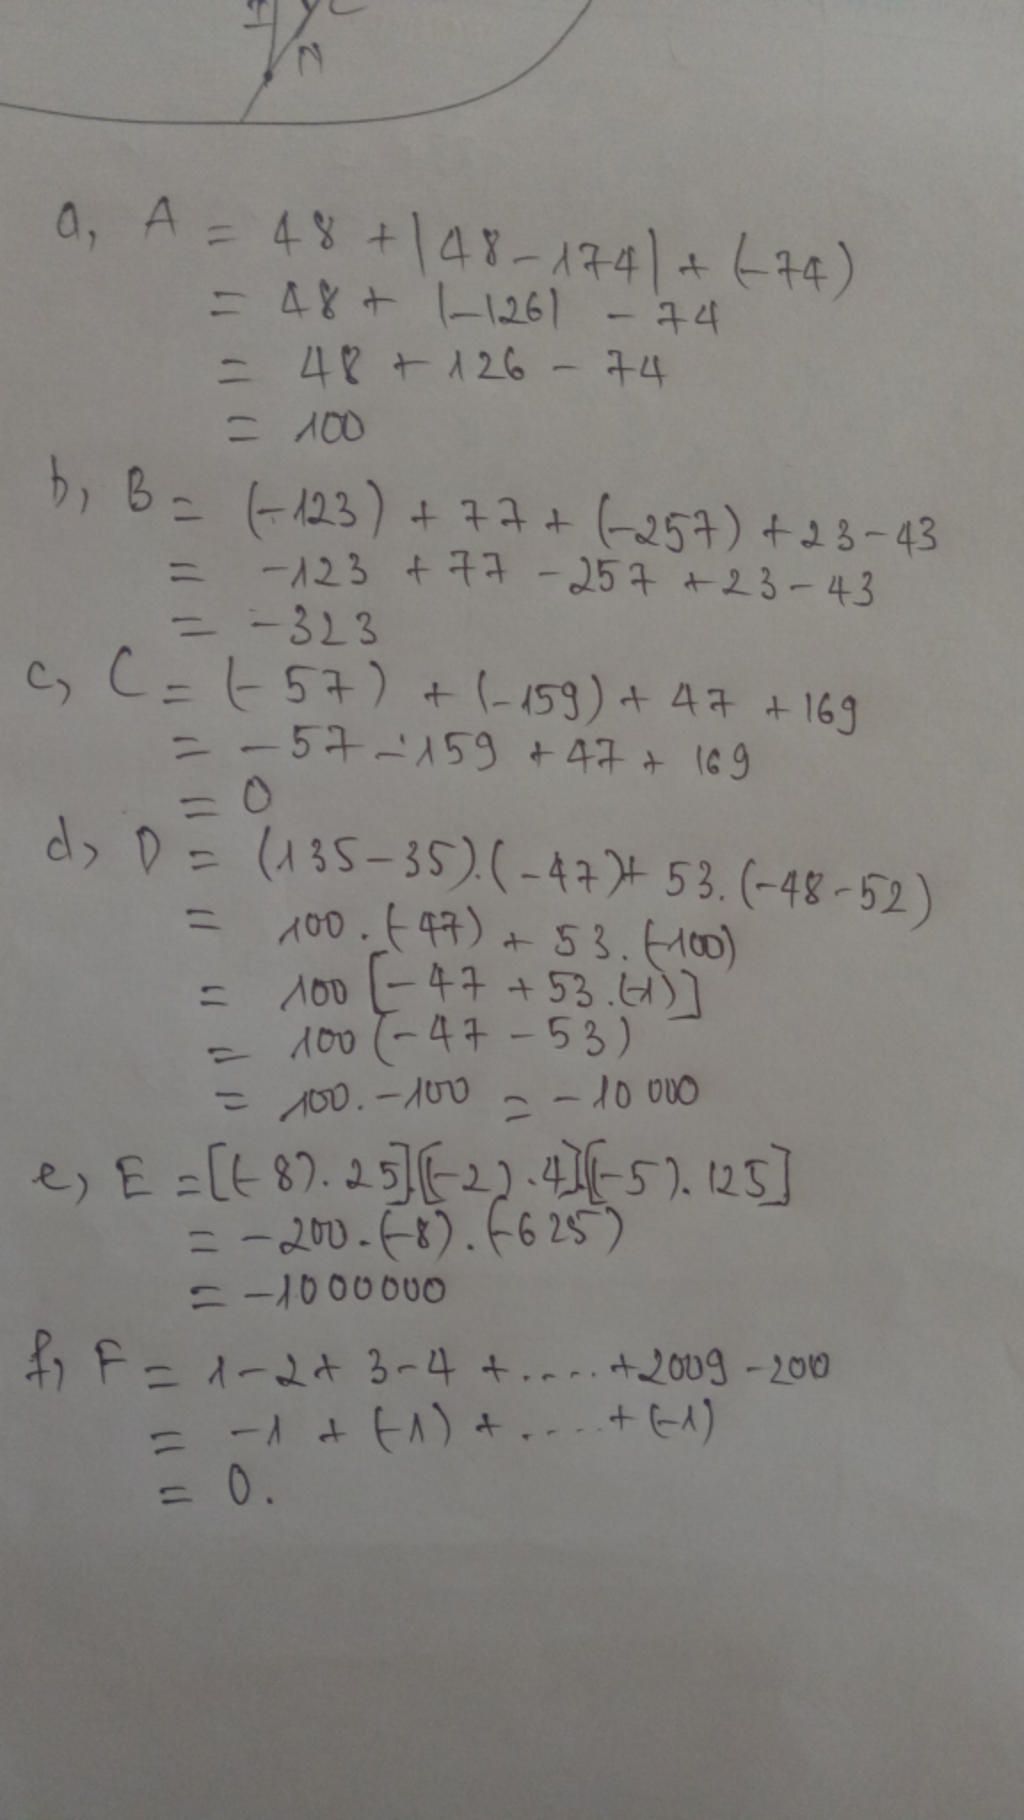 N
a, A = 48 + |48 - 174| + (-74)
= 48 + |-126| - 74
= 48 + 126 - 74
= 100
b, B = (-123) + 77 + (-257) + 23 - 43
= -123 + 77 - 257 + 23 - 43
= -323
c, C = (-57) + (-159) + 47 + 169
= -57 - 159 + 47 + 169
= 0
d, D = (135 - 35).(-47) + 53.(-48 - 52)
= 100.(-47) + 53.(-100)
= 100 [-47 + 53.(-1)]
= 100 (-47 - 53)
= 100. -100 = -10 000
e, E = [(-8).25].[(-2).4].[(-5).125]
= -200.(-8).(-625)
= -1000000
f, F = 1 - 2 + 3 - 4 + ..... + 2009 - 200
= -1 + (-1) + ..... + (-1)
= 0.